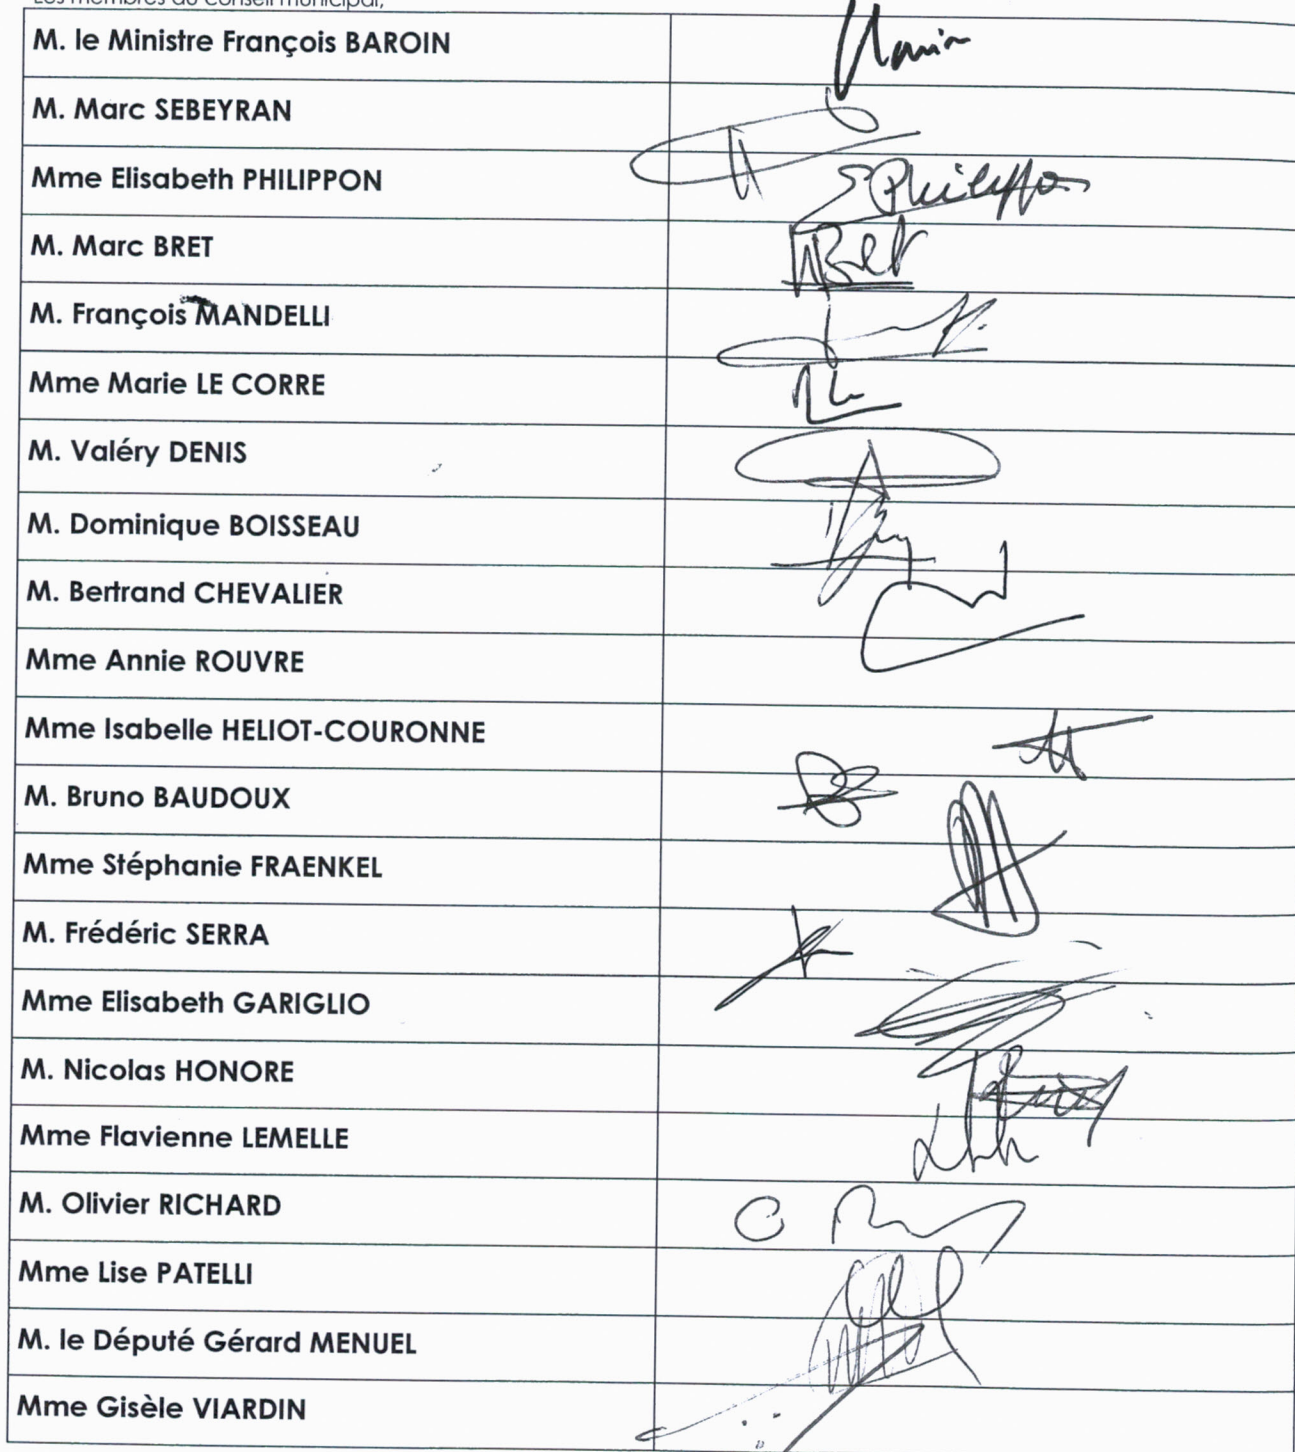 Les membres du Conseil municipal,
M. le Ministre François BAROIN
M. Marc SEBEYRAN
Mme Elisabeth PHILIPPON
EPhilippon
M. Marc BRET
MBret
M. François MANDELLI
Mme Marie LE CORRE
M. Valéry DENIS
M. Dominique BOISSEAU
M. Bertrand CHEVALIER
Mme Annie ROUVRE
Mme Isabelle HELIOT-COURONNE
M. Bruno BAUDOUX
Mme Stéphanie FRAENKEL
M. Frédéric SERRA
Mme Elisabeth GARIGLIO
M. Nicolas HONORE
Mme Flavienne LEMELLE
M. Olivier RICHARD
Mme Lise PATELLI
M. le Député Gérard MENUEL
Mme Gisèle VIARDIN